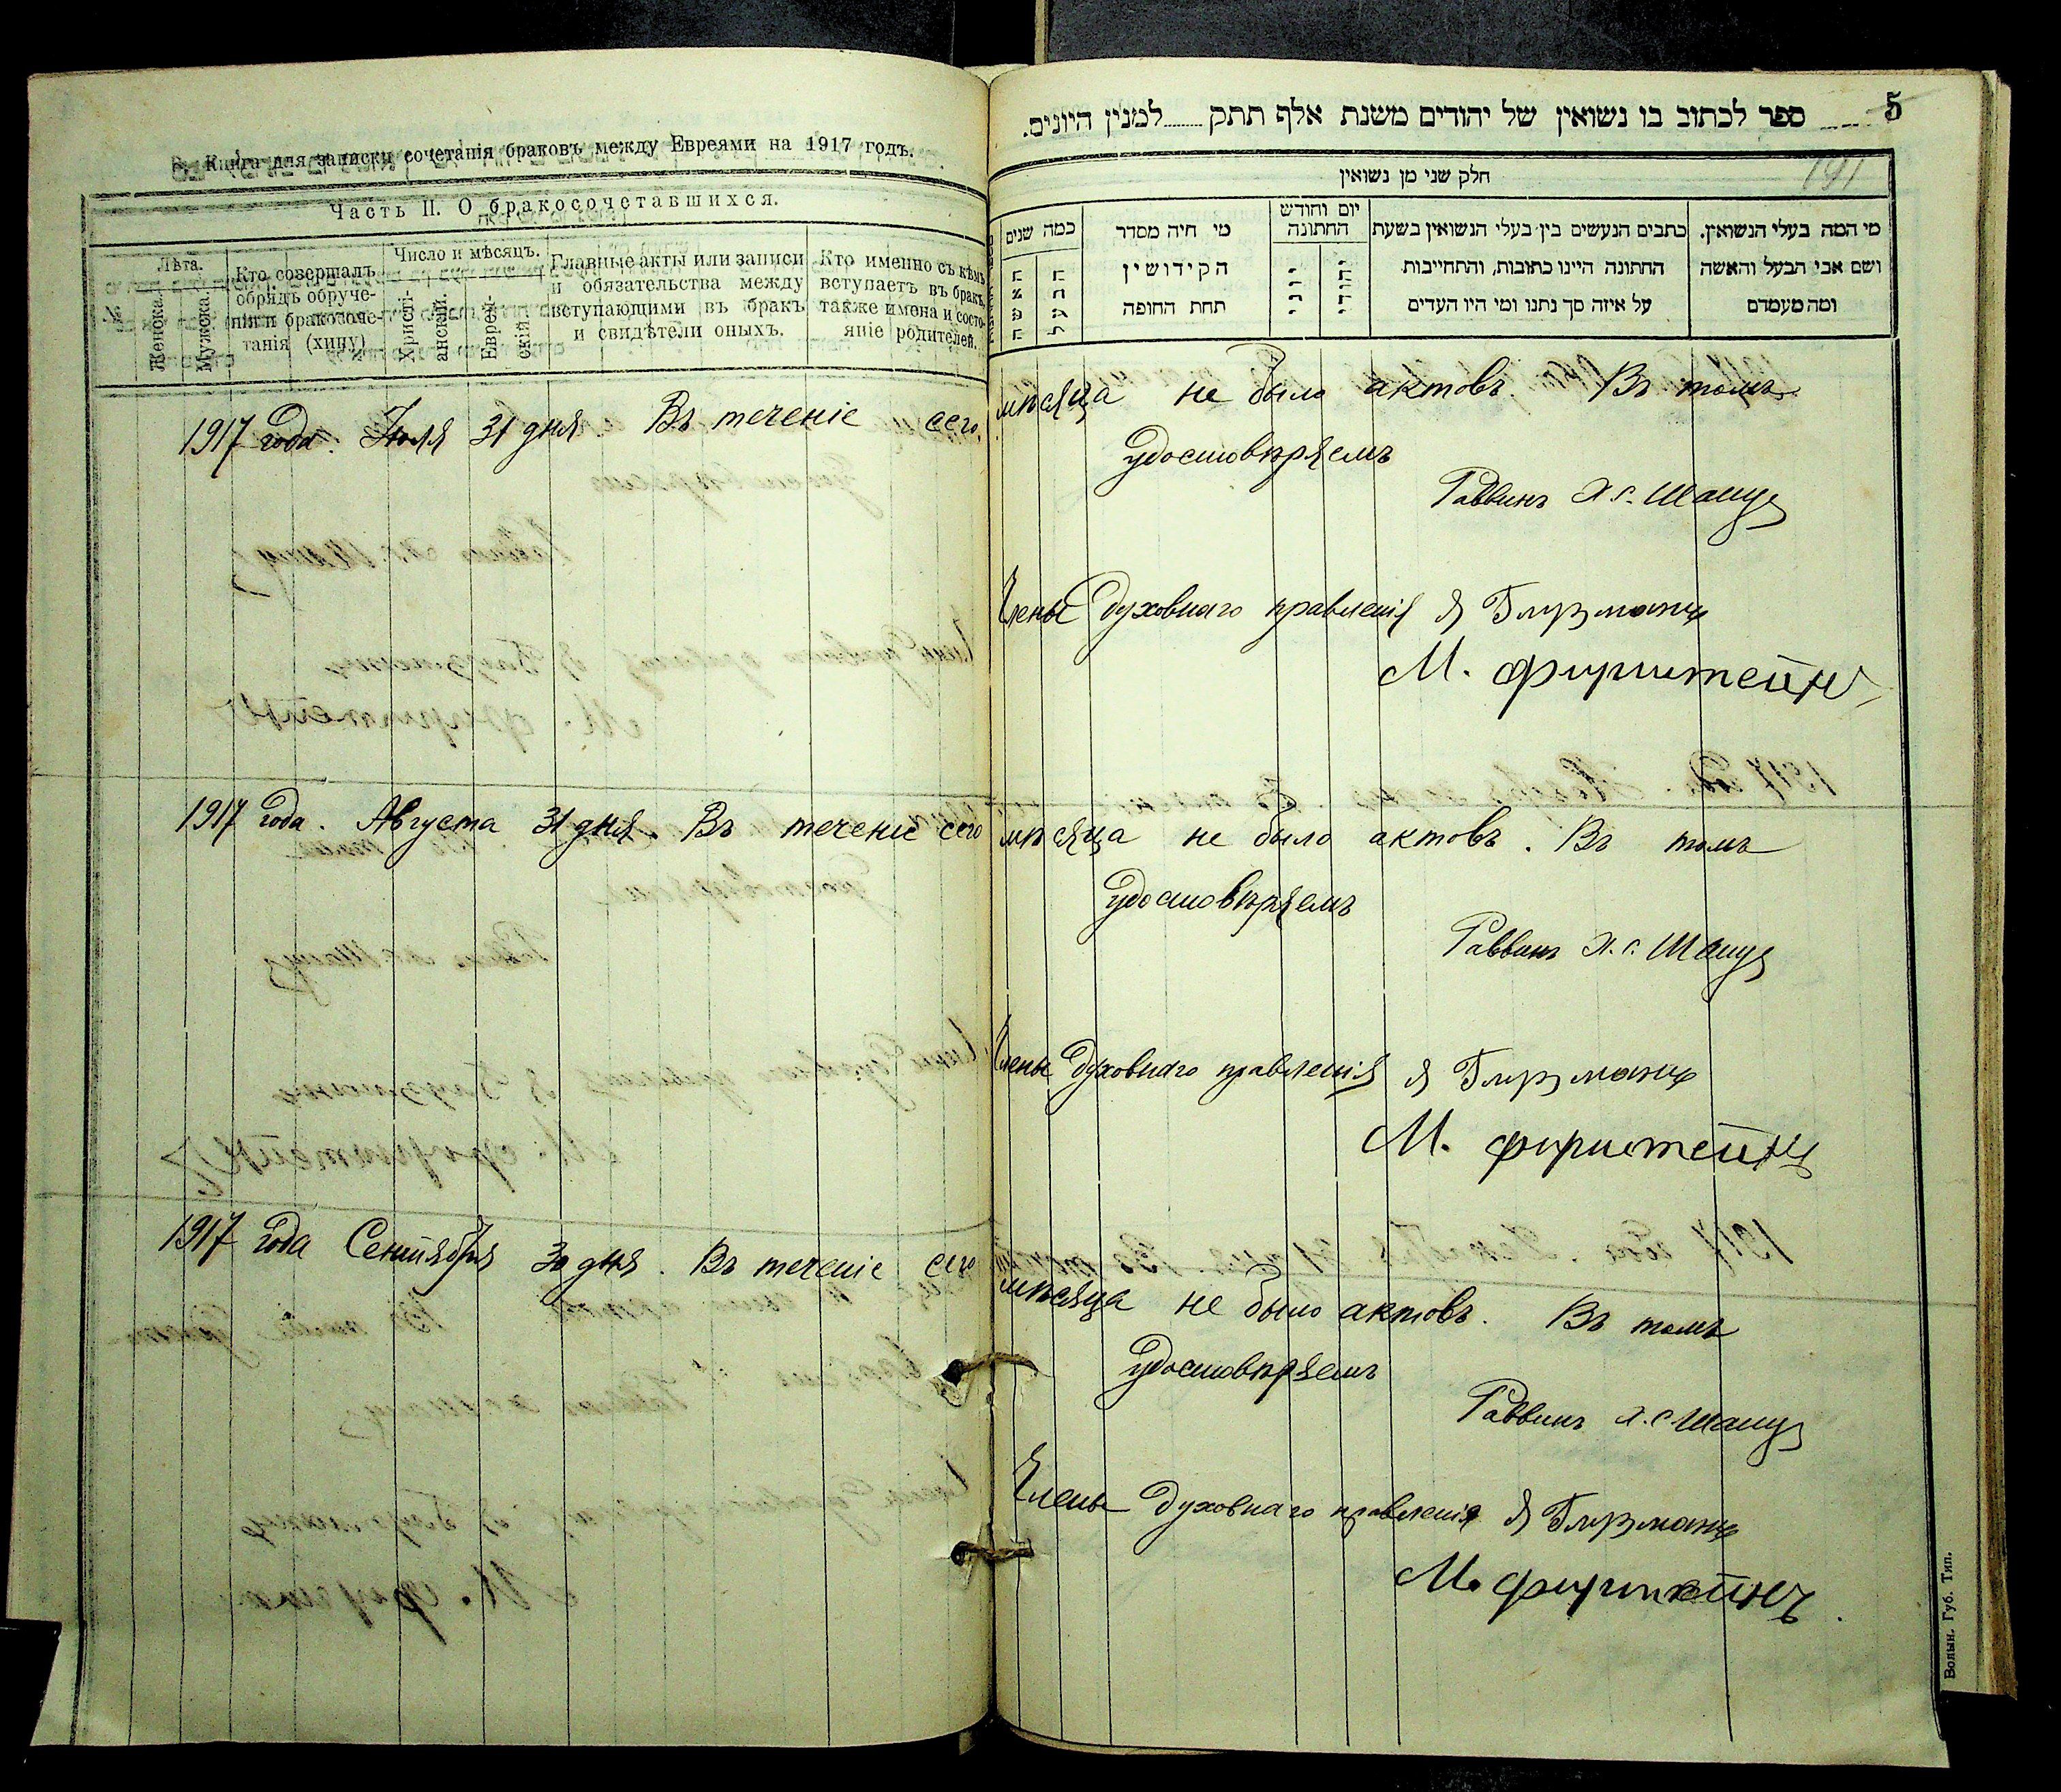 Книга для записки сочетанія браковъ между Евреями на 1917 годъ.
Часть II. О бракосочетавшихся.
№
Лѣта.
Женска.
Мужска.
Кто совершалъ
обрядъ обруче-
нія и бракосоче-
танія (хипу)
Число и мѣсяцъ.
Христі-
анский.
Еврей-
скій
Главные акты или записи
и обязательства между
вступающими въ бракъ
и свидѣтели оныхъ.
Кто именно съ кѣмъ
вступаетъ въ бракъ,
также имена и состо-
яніе родителей.
5
ספר לכתוב בו נשואין של יהודים משנת אלף תתק למנין היונים.
191
חלק שני מן נשואין
מי המה בעלי הנשואין.
ושם אבי הבעל והאשה
ומה מעמדם
כתבים הנעשים בין בעלי הנשואין בשעת
החתונה היינו כתובות, והתחייבות
על איזה סך נתנו ומי היו העדים
יום וחודש
החתונה
יהודי
יוני
מי חיה מסדר
הקידושין
תחת החופה
כמה שנים
הבעל
האשה
1917 года. Іюля 31 дня Въ теченіе сего мѣсяца не было актовъ. Въ томъ
удостовѣряемъ
Раввинъ Х С. Шапу
Члены Духовнаго правленія Я Глузманъ
М. Фурштейнъ
1917 года. Августа 31 дня. Въ теченіе сего мѣсяца не было актовъ. Въ томъ
удостовѣряемъ
Раввинъ Х. С. Шапу
Члены Духовнаго правленія Я Глузманъ
М. Фурштейнъ
1917 года Сентября 30 дня. Въ теченіе сего мѣсяца не было актовъ. Въ томъ
удостовѣряемъ
Раввинъ Х. С Шапу
Члены Духовнаго правленія Я Глузманъ
М. Фурштейнъ.
Волын. Губ. Тип.